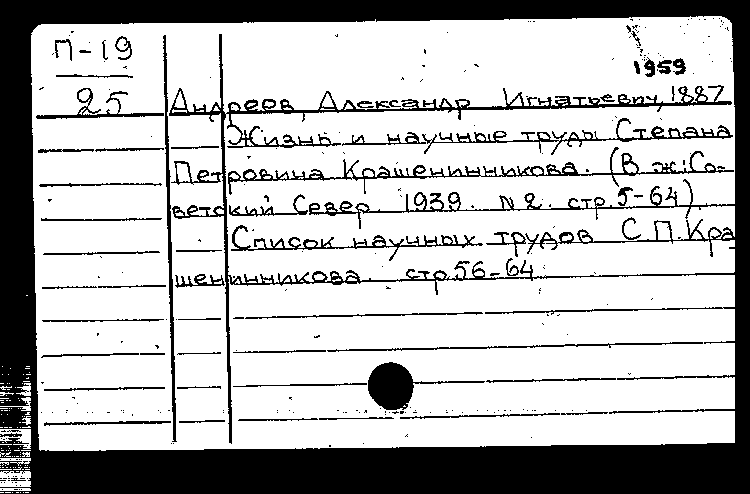 П-19
1959
25 Андреев, Александр Игнатьевич, 1887
Жизнь и научные труды Степана
Петровича Крашенинникова. (В ж: Со-
ветский Север. 1939. N 2. стр. 5-64)
Список научных трудов С.П. Кра
шенинникова. стр. 56-64.